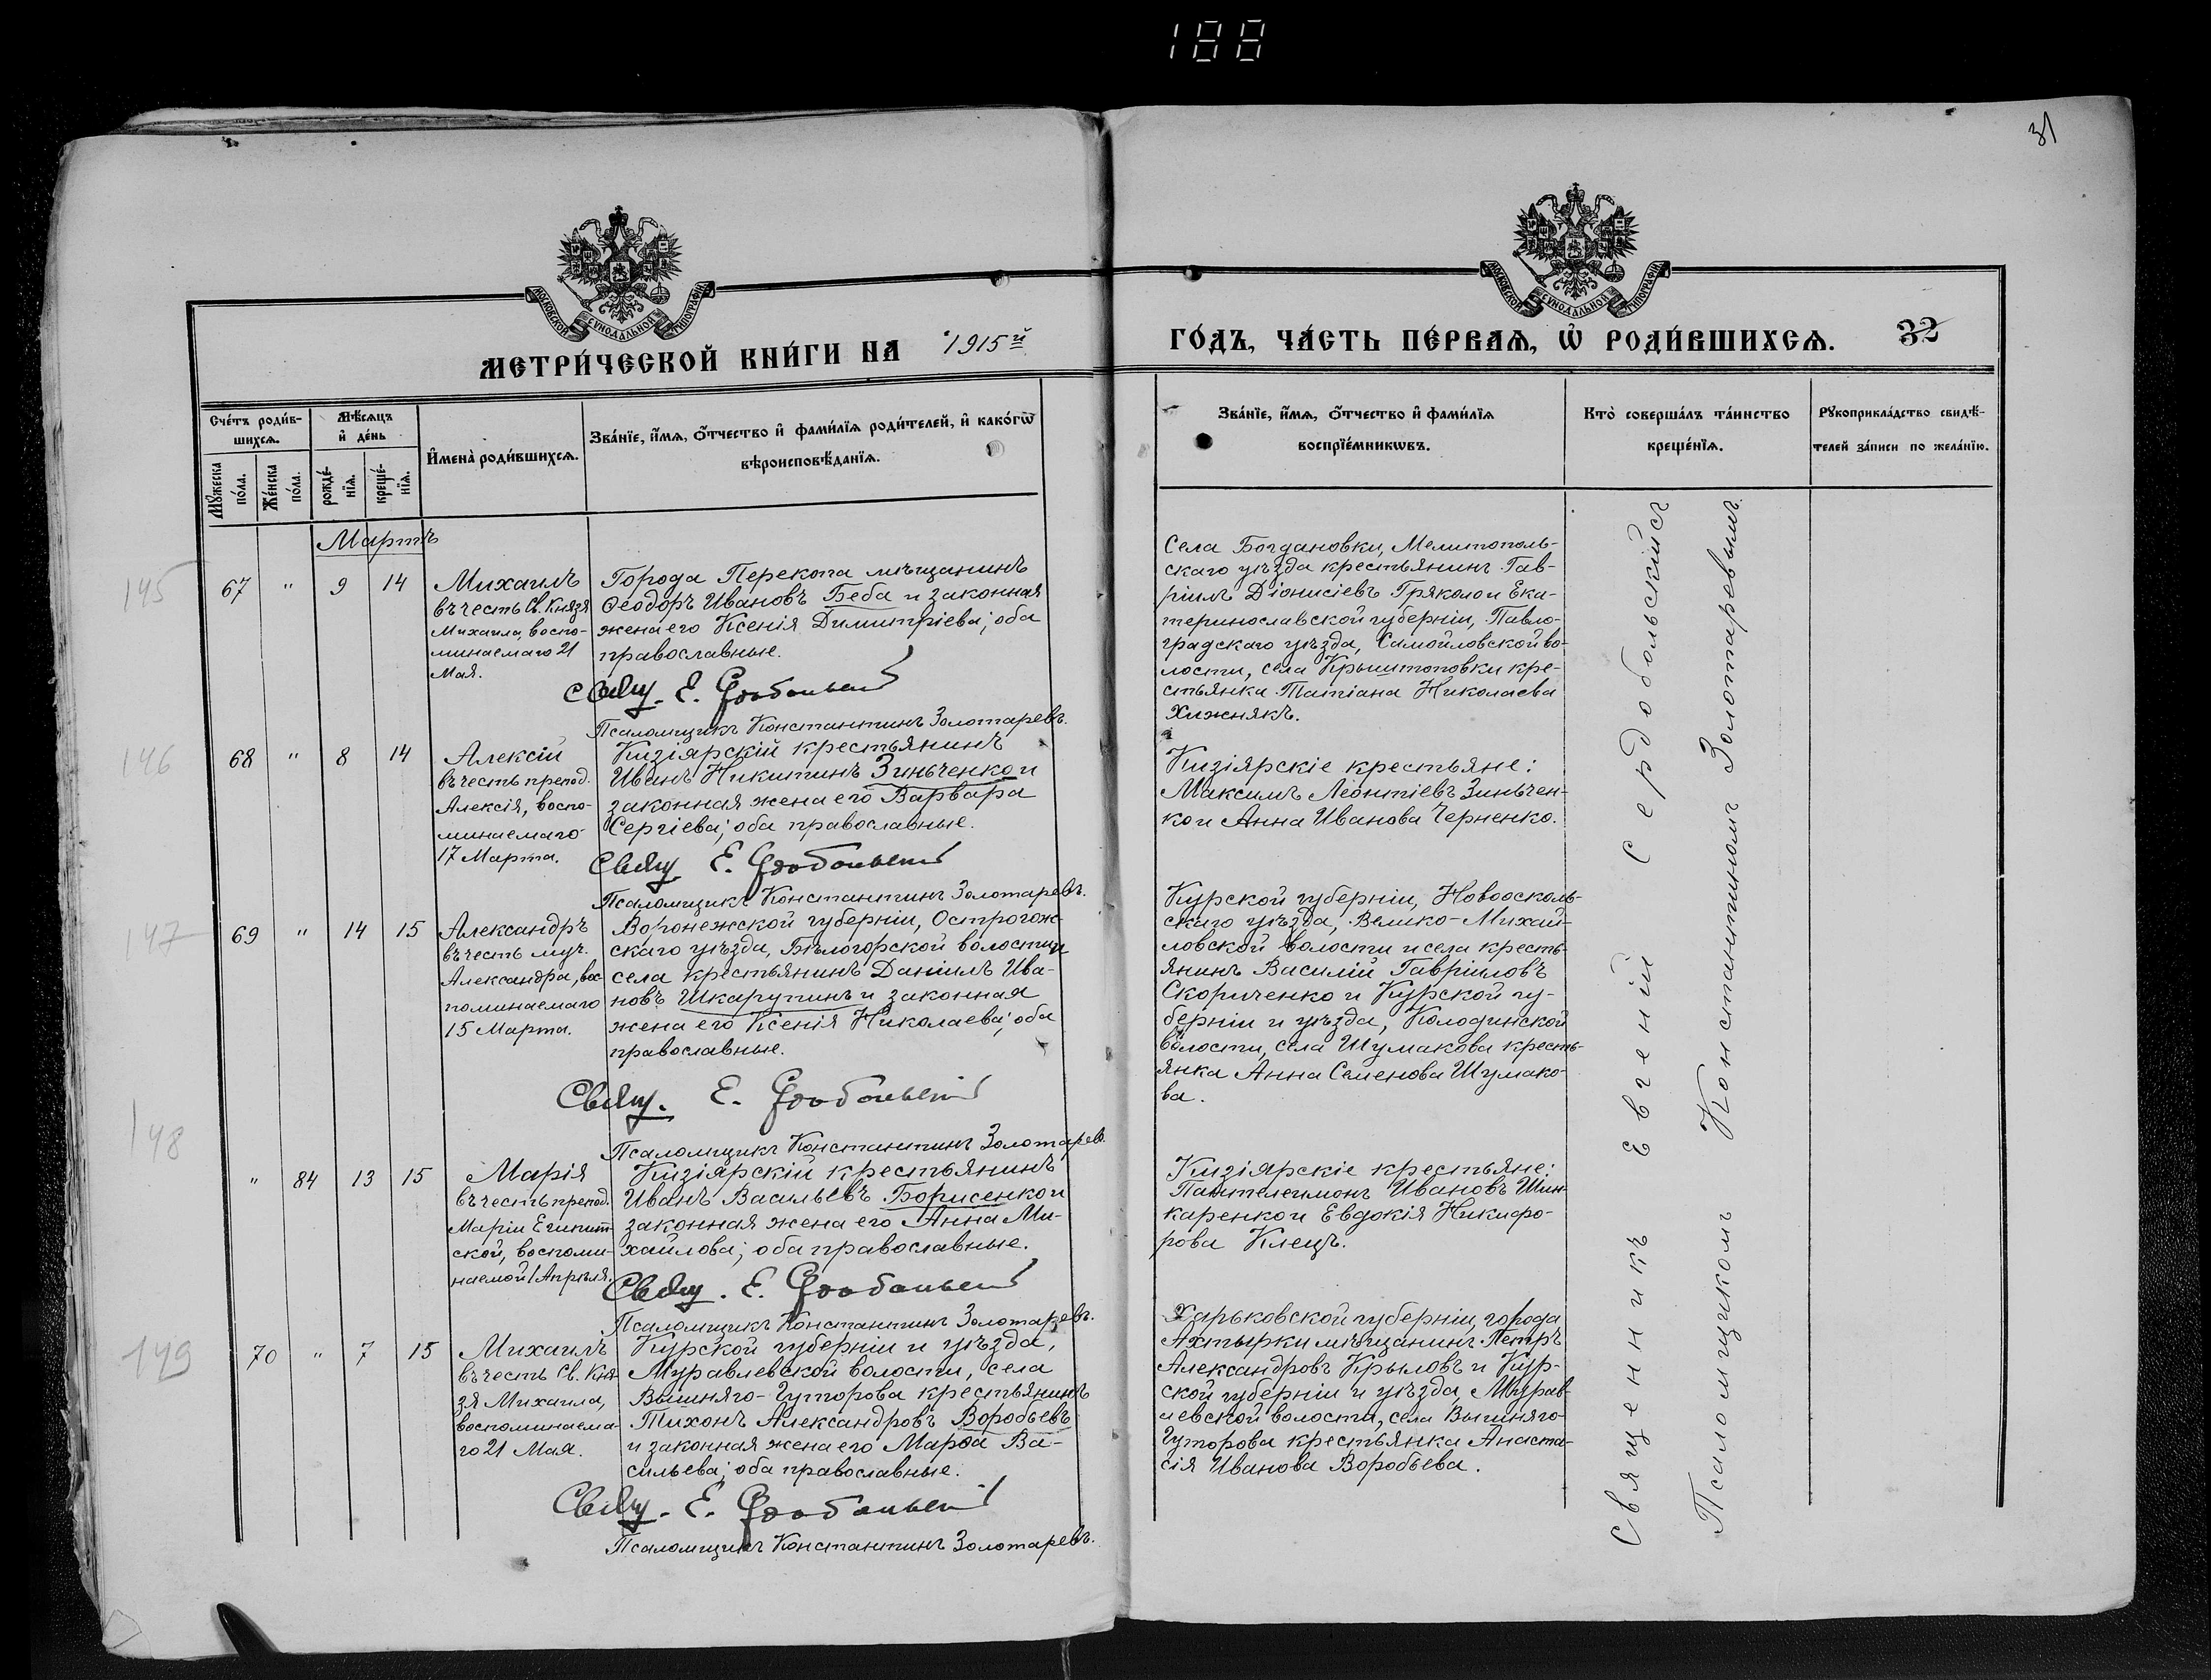 188
31
МОСКОВСКОЙ СѴНОДАЛЬНОЙ ТИПОГРАФІИ
МОСКОВСКОЙ СѴНОДАЛЬНОЙ ТИПОГРАФІИ
МЕТРИ́ЧЕСКОЙ КНИ́ГИ НА 1915й
ГО́ДЪ, ЧА́СТЬ ПЕ́РВАѦ, Ѡ҆ РОДИ́ВШИХСѦ. 32
Сче́тъ роди́в-
шихсѧ.
Мѣ́сѧцъ
и҆ де́нь
Мꙋ́жеска
по́ла.
Же́нска
по́ла.
рожде́-
нїѧ.
креще́-
нїѧ.
И҆мена̀ роди́вшихсѧ.
Зва́нїе, и҆́мѧ, ѻ҆́тчество и҆ фами́лїѧ роди́телей, и҆ како́гѡ
вѣроисповѣ́данїѧ.
Зва́нїе, и҆́мѧ, ѻ҆́тчество и҆ фами́лїѧ
воспрїе́мникѡвъ.
Кто̀ соверша́лъ та́инство
креще́нїѧ.
Рꙋкоприкла́дство свидѣ́-
телей за́писи по жела́нїю.
Мартъ
145
67 " 9 14
Михаилъ
въ честь Св. Князя
Михаила, воспо-
минаемаго 21
Мая.
Города Перекопа мѣщанинъ
Ѳеодоръ Ивановъ Беба и законная
жена его Ксенія Димитріева; оба
православные.
Свящ. Е. Сердобольскій
Псаломщикъ Константинъ Золотаревъ.
Села Богдановки, Мелитополь-
скаго уѣзда крестьянинъ Гав-
ріилъ Діонисіевъ Гряколо и Ека-
теринославской губерніи, Павло-
градскаго уѣзда, Самойловской во-
лости, села Крыштоповки кре-
стьянка Татіана Николаева
Хижнякъ.
146
68 " 8 14
Алексій
въ честь препод.
Алексія, воспо-
минаемаго
17 Марта.
Кизіярскій крестьянинъ
Иванъ Никитинъ Зинченко и
законная жена его Варвара
Сергіева; оба православные.
Свящ. Е. Сердобольскій
Псаломщикъ Константинъ Золотаревъ.
Кизіярскіе крестьяне:
Максимъ Леонтіевъ Зиньчен-
ко и Анна Иванова Черненко.
147
69 " 14 15
Александръ
въ честь муч.
Александра, вос
поминаемаго
15 Марта.
Воронежской губерніи, Острогож-
скаго уѣзда, Бѣлогорской волости и
села крестьянинъ Даніилъ Ива-
новъ Шкарупинъ и законная
жена его Ксенія Николаева; оба
православные.
Свящ. Е. Сердобольскій
Псаломщикъ Константинъ Золотаревъ.
Курской губерніи, Новоосколь-
скаго уѣзда, Велико-Михай-
ловской волости и села кресть-
янинъ Василій Гавріиловъ
Скориченко и Курской гу-
берніи и уѣзда, Колодинской
волости, села Шумакова кресть-
янка Анна Семенова Шумако-
ва.
148
" 84 13 15
Марія
въ честь препод.
Маріи Египет-
ской, воспоми-
наемой 1 Апрѣля.
Кизіярскій крестьянинъ
Иванъ Васильевъ Борисенко и
законная жена его Анна Ми-
хайлова; оба православные.
Свящ. Е. Сердобольскій
Псаломщикъ Константинъ Золотаревъ.
Кизіярскіе крестьяне:
Пантелеимонъ Ивановъ Шин-
каренко и Евдокія Никифо-
рова Клецъ.
149
70 " 7 15
Михаилъ
въ честь Св. Кня-
зя Михаила,
воспоминаема-
го 21 Мая.
Курской губерніи и уѣзда,
Муравлевской волости, села
Вышняго-Гуторова крестьянинъ
Тихонъ Александровъ Воробьевъ
и законная жена его Марѳа Ва-
сильева; оба православные.
Свящ. Е. Сердобольскій
Псаломщикъ Константинъ Золотаревъ.
Харьковской губерніи, города
Ахтырки мѣщанинъ Петръ
Александровъ Крыловъ и Кур-
ской губерніи и уѣзда, Мурав-
левской волости, села Вышняго-
Гуторова крестьянка Анаста-
сія Иванова Воробьева.
Священникъ Евгеній Сердобольскій съ
Псаломщикомъ Константиномъ Золотаревымъ.